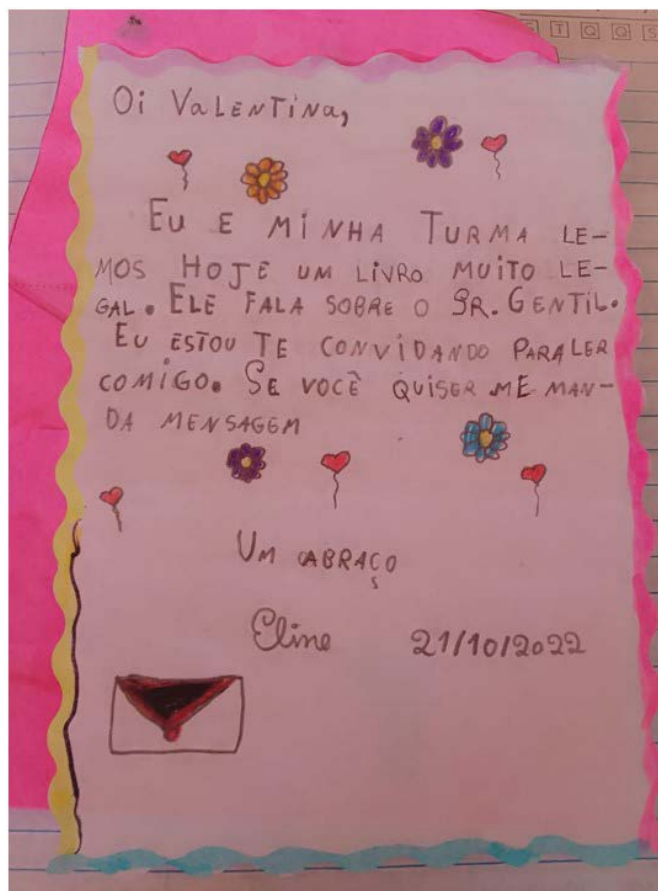 T Q Q S
Oi VALENTINA,
EU E MINHA TURMA LE-
MOS HOJE UM LIVRO MUITO LE-
GAL. ELE FALA SOBRE O SR. GENTIL.
EU ESTOU TE CONVIDANDO PARA LER
COMIGO. SE VOCÊ QUISER ME MAN-
DA MENSAGEM
UM ABRAÇO
Eline 21/10/2022